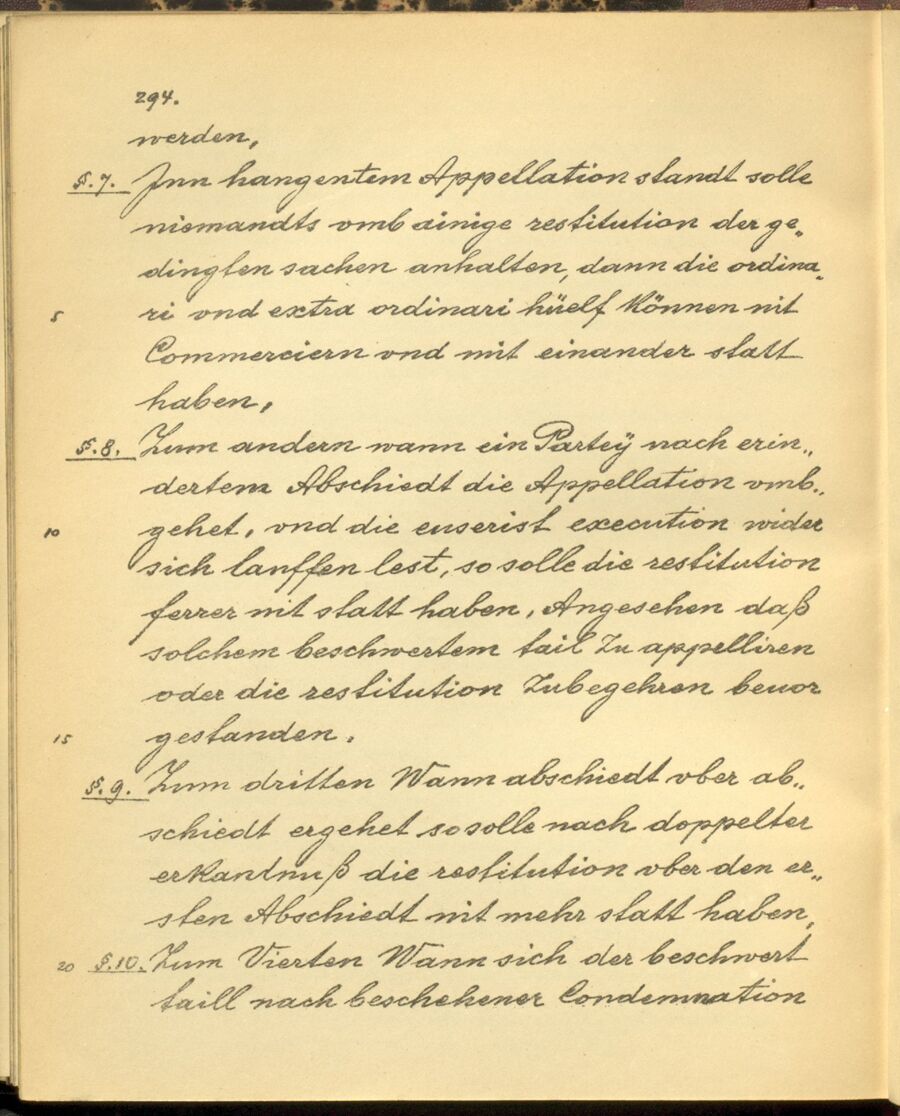 294.
werden,
§.7. Jnn hangentem Appellation standt solle
niemandts vmb ainige restitution der ge„
dingten sachen anhalten, dann die ordina„
5 ri vnd extra ordinari hüelf können nit
Commerciern vnd mit einander statt
haben,
§.8. Zum andern wann ein Parteÿ nach erin„
dertem Abschiedt die Appellation vmb„
10 gehet, vnd die euserist execution wider
sich lauffen lest, so solle die restitution
ferrer nit statt haben, Angesehen daß
solchem beschwertem tail zu appelliren
oder die restitution Zubegehren beuor
15 gestanden.
§.9. Zum dritten Wann abschiedt vber ab„
schiedt ergehet so solle nach doppelter
erkantnuß die restitution vber den er„
sten Abschiedt nit mehr statt haben,
20 §.10. Zum Vierten Wann sich der beschwert
taill nach beschehener Condemnation